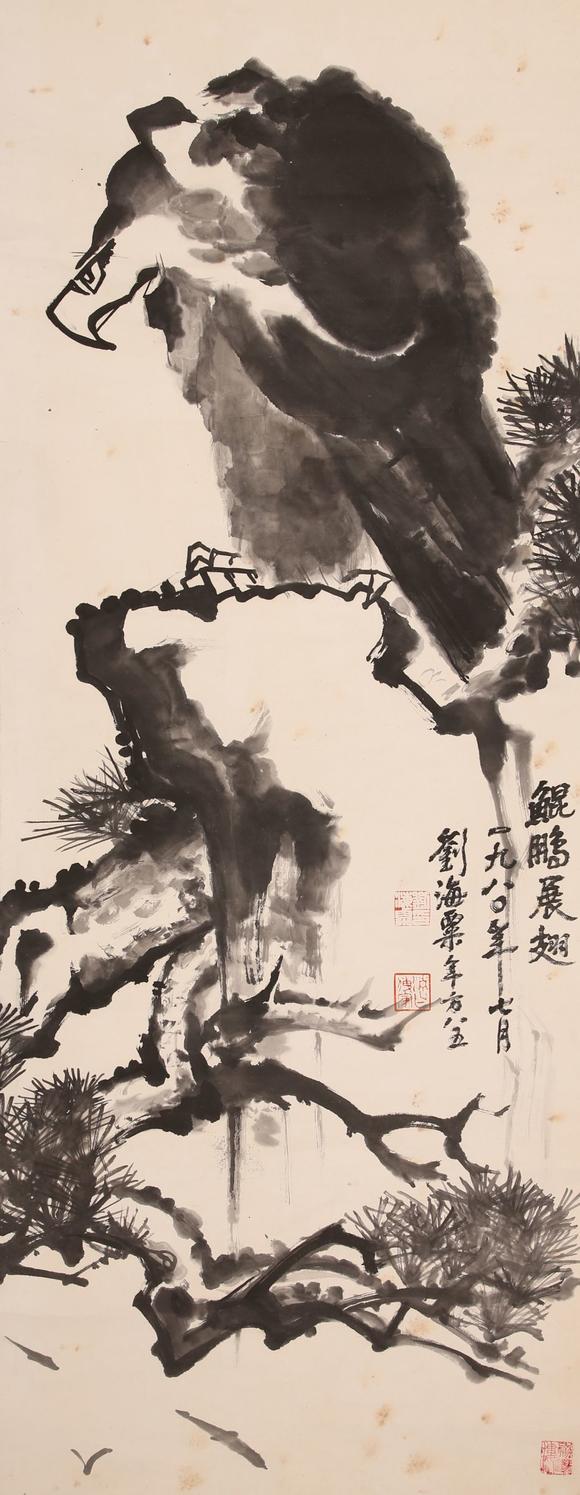 鯤鵬展翅
一九八〇年七月
劉海粟年方八五